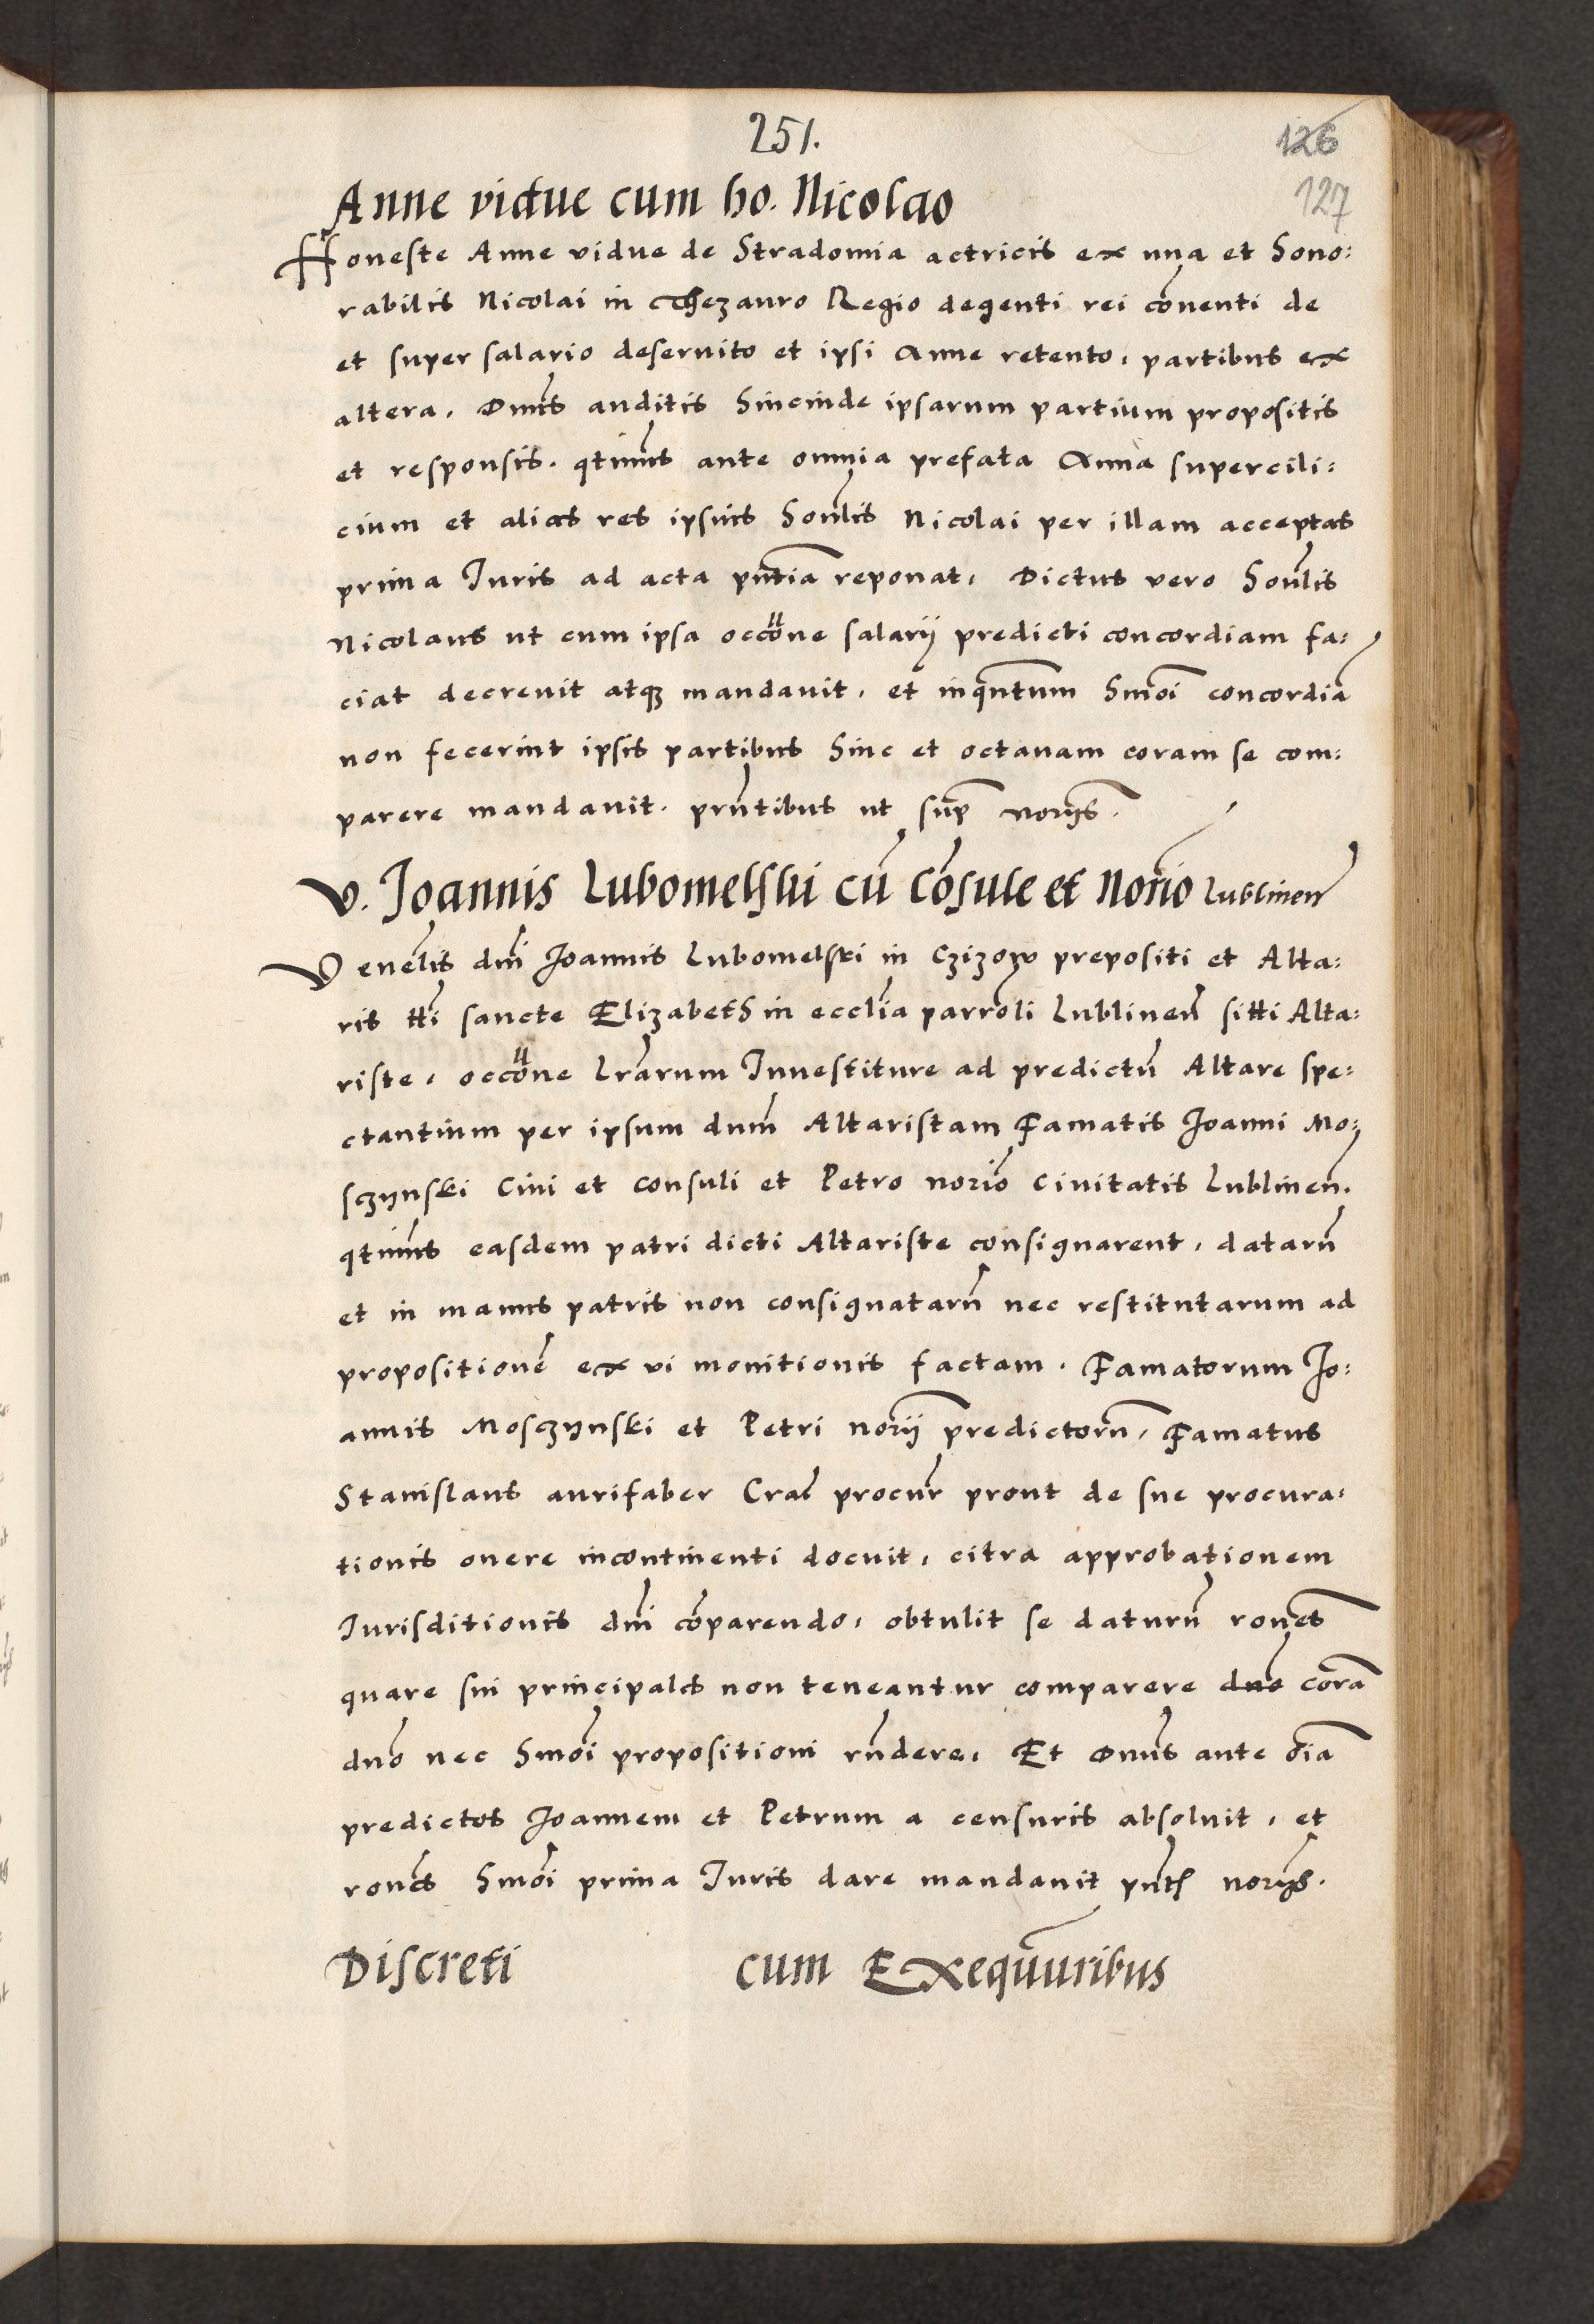 251.
126
127
Anne vidue cum ho. Nicolao
Honeste Anne vidue de Stradomia actricis ex una et hono:
rabilis Nicolai in Thezauro Regio degenti rei cōventi de
et super salario deservito et ipsi Anne retento, partibus ex
altera, Dnūs auditis hincinde ipsarum partium propositis
et responsis. qtinūs ante omnia prefata Anna supercili:
cium et alias res ipsius honūlis Nicolai per illam acceptas
prima Iuris ad acta pūtia reponat, Dictus vero honūlis
Nicolaus ut cum ipsa occōne salarij predicti concordiam fa:
ciat decrevit atqȝ mandavit, et inqūntum hmōi concordiā
non fecerint ipsis partibus hinc et octavam coram se com:
parere mandavit. prūtibus ut sup̄ norijs.
V. Joannis Lubomelski cū Cōsule et Norīo Lublineñ
Venēlis dnī Joannis Lubomelski in Czizow prepositi et Alta:
ris ttī sancte Elizabeth in ecclīa parrōli Lublineñ sitti Alta:
riste, occōne Lrārum Investiture ad predictū Altare spe:
ctantium per ipsum dnūm Altaristam Famatis Joanni Mo:
sczynski Civi et consuli et Petro norīo Civitatis Lublineñ.
qtinūs easdem patri dicti Altariste consignarent, datarū
et in manus patris non consignatarū nec restitutarum ad
propositionē ex vi monitionis factam. Famatorum Jo:
annis Mosczynski et Petri norīj predictorū, Famatus
Stanislaus aurifaber Craĉ procur̄ prout de sue procura:
tionis onere incontinenti docuit, citra approbationem
Iurisditionis dnī cōparendo, obtulit se daturū ronēs
quare sui principales non teneantur comparere dno corā
dnō nec hmōi propositioni rn̄dere, Et Dnūs ante oīa
predictos Joannem et Petrum a censuris absolvit, et
ronēs hmōi prima Iuris dare mandavit pn̄tꝭ norijs.
Discreti cum Exequūturibus